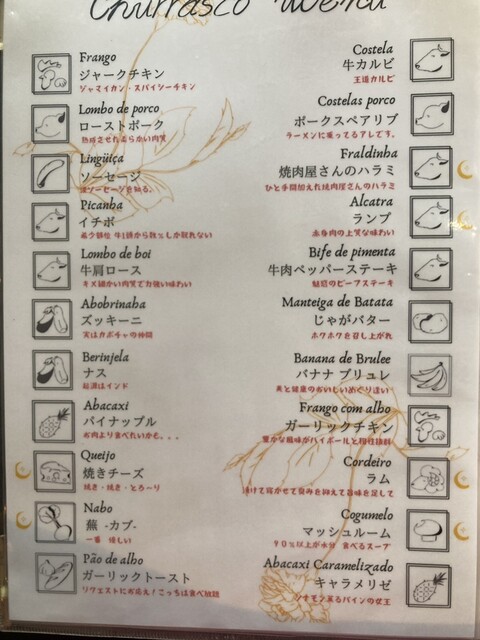 Churrasco Menu
Frango
ジャークチキン
ジャマイカン・スパイシーチキン
Lombo de porco
ローストポーク
熟成させれ柔らかい肉質
Lingüiça
ソーセージ
Picanha
イチボ
希少部位 牛1頭から数%しか取れない
Lombo de boi
牛肩ロース
キメ細かい肉質で力強い味わい
Abobrinaha
ズッキーニ
実はカボチャの仲間
Berinjela
ナス
起源はインド
Abacaxi
パイナップル
お肉より食べれいかも。。。
Queijo
焼きチーズ
焼き・焼き・とろ〜り
Nabo
蕪 -カブ-
一番 嬉しい
Pão de alho
ガーリックトースト
リクエストにお応え!こっちは食べ放題
Costela
牛カルビ
王道カルビ
Costelas porco
ポークスペアリブ
ラーメンに乗ってるアレです。
Fraldinha
焼肉屋さんのハラミ
ひと手間加えれ焼肉屋さんのハラミ
Alcatra
ランプ
赤身肉の上質な味わい
Bife de pimenta
牛肉ペッパーステーキ
魅惑のビーフステーキ
Manteiga de Batata
じゃがバター
ホクホクを召し上がれ
Banana de Brulee
バナナ ブリュレ
美と健康のおいしいめぐり逢い
Frango com alho
ガーリックチキン
豊かな風味がハイボールと相性抜群
Cordeiro
ラム
漬けて寝かせて臭みを抑えて旨味を足して
Cogumelo
マッシュルーム
90%以上が水分 食べるスープ
Abacaxi Caramelizado
キャラメリゼ
シナモン薫るパインの女王